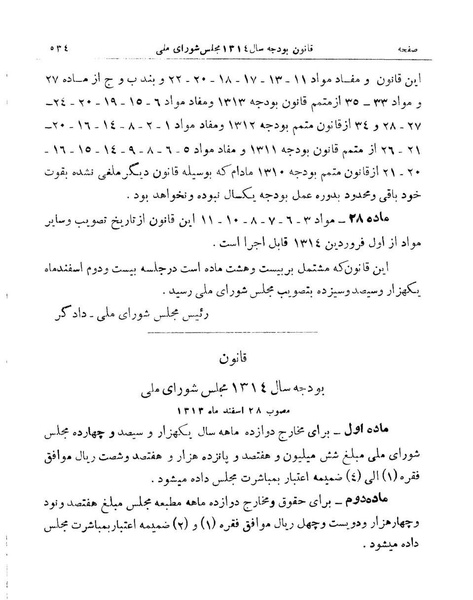 صفحه قانون بودجه سال ۱۳۱۴ مجلس شورای ملی ۵۳۴
این قانون و مفاد مواد ۱۱ – ۱۳ – ۱۷ – ۱۸ – ۲۰ – ۲۲ و بند ب و ج از ماده ۲۷
و مواد ۳۳ – ۳۵ از متمم قانون بودجه ۱۳۱۳ ومفاد مواد ۶ – ۱۵ – ۱۹ – ۲۰ – ۲۴ –
۲۷ – ۲۸ و ۳۴ از قانون متمم بودجه ۱۳۱۲ ومفاد مواد ۱ – ۲ – ۸ – ۱۴ – ۱۶ – ۲۰ –
۲۱ – ۲۶ از متمم قانون بودجه ۱۳۱۱ و مفاد مواد ۵ – ۶ – ۸ – ۹ – ۱۴ – ۱۵ – ۱۶ –
۲۰ – ۲۱ از قانون متمم بودجه ۱۳۱۰ مادام که بوسیله قانون دیگر ملغی نشده بقوت
خود باقی ومحدود بدوره عمل بودجه یکسال نبوده ونخواهد بود .
ماده ۲۸ – مواد ۳ – ۶ – ۷ – ۸ – ۱۰ – ۱۱ این قانون از تاریخ تصویب وسایر
مواد از اول فروردین ۱۳۱۴ قابل اجرا است .
این قانون که مشتمل بر بیست وهشت ماده است در جلسه بیست ودوم اسفندماه
یکهزار وسیصد وسیزده بتصویب مجلس شورای ملی رسید .
رئیس مجلس شورای ملی – دادگر
قانون
بودجه سال ۱۳۱۴ مجلس شورای ملی
مصوب ۲۸ اسفند ماه ۱۳۱۳
ماده اول – برای مخارج دوازده ماهه سال یکهزار و سیصد و چهارده مجلس
شورای ملی مبلغ شش میلیون و هفتصد و پانزده هزار و هفتصد وشصت ریال موافق
فقره (۱) الی (۴) ضمیمه اعتبار بمباشرت مجلس داده میشود .
ماده دوم – برای حقوق ومخارج دوازده ماهه مطبعه مجلس مبلغ هفتصد ونود
وچهارهزار ودویست وچهل ریال موافق فقره (۱) و (۲) ضمیمه اعتبار بمباشرت مجلس
داده میشود .